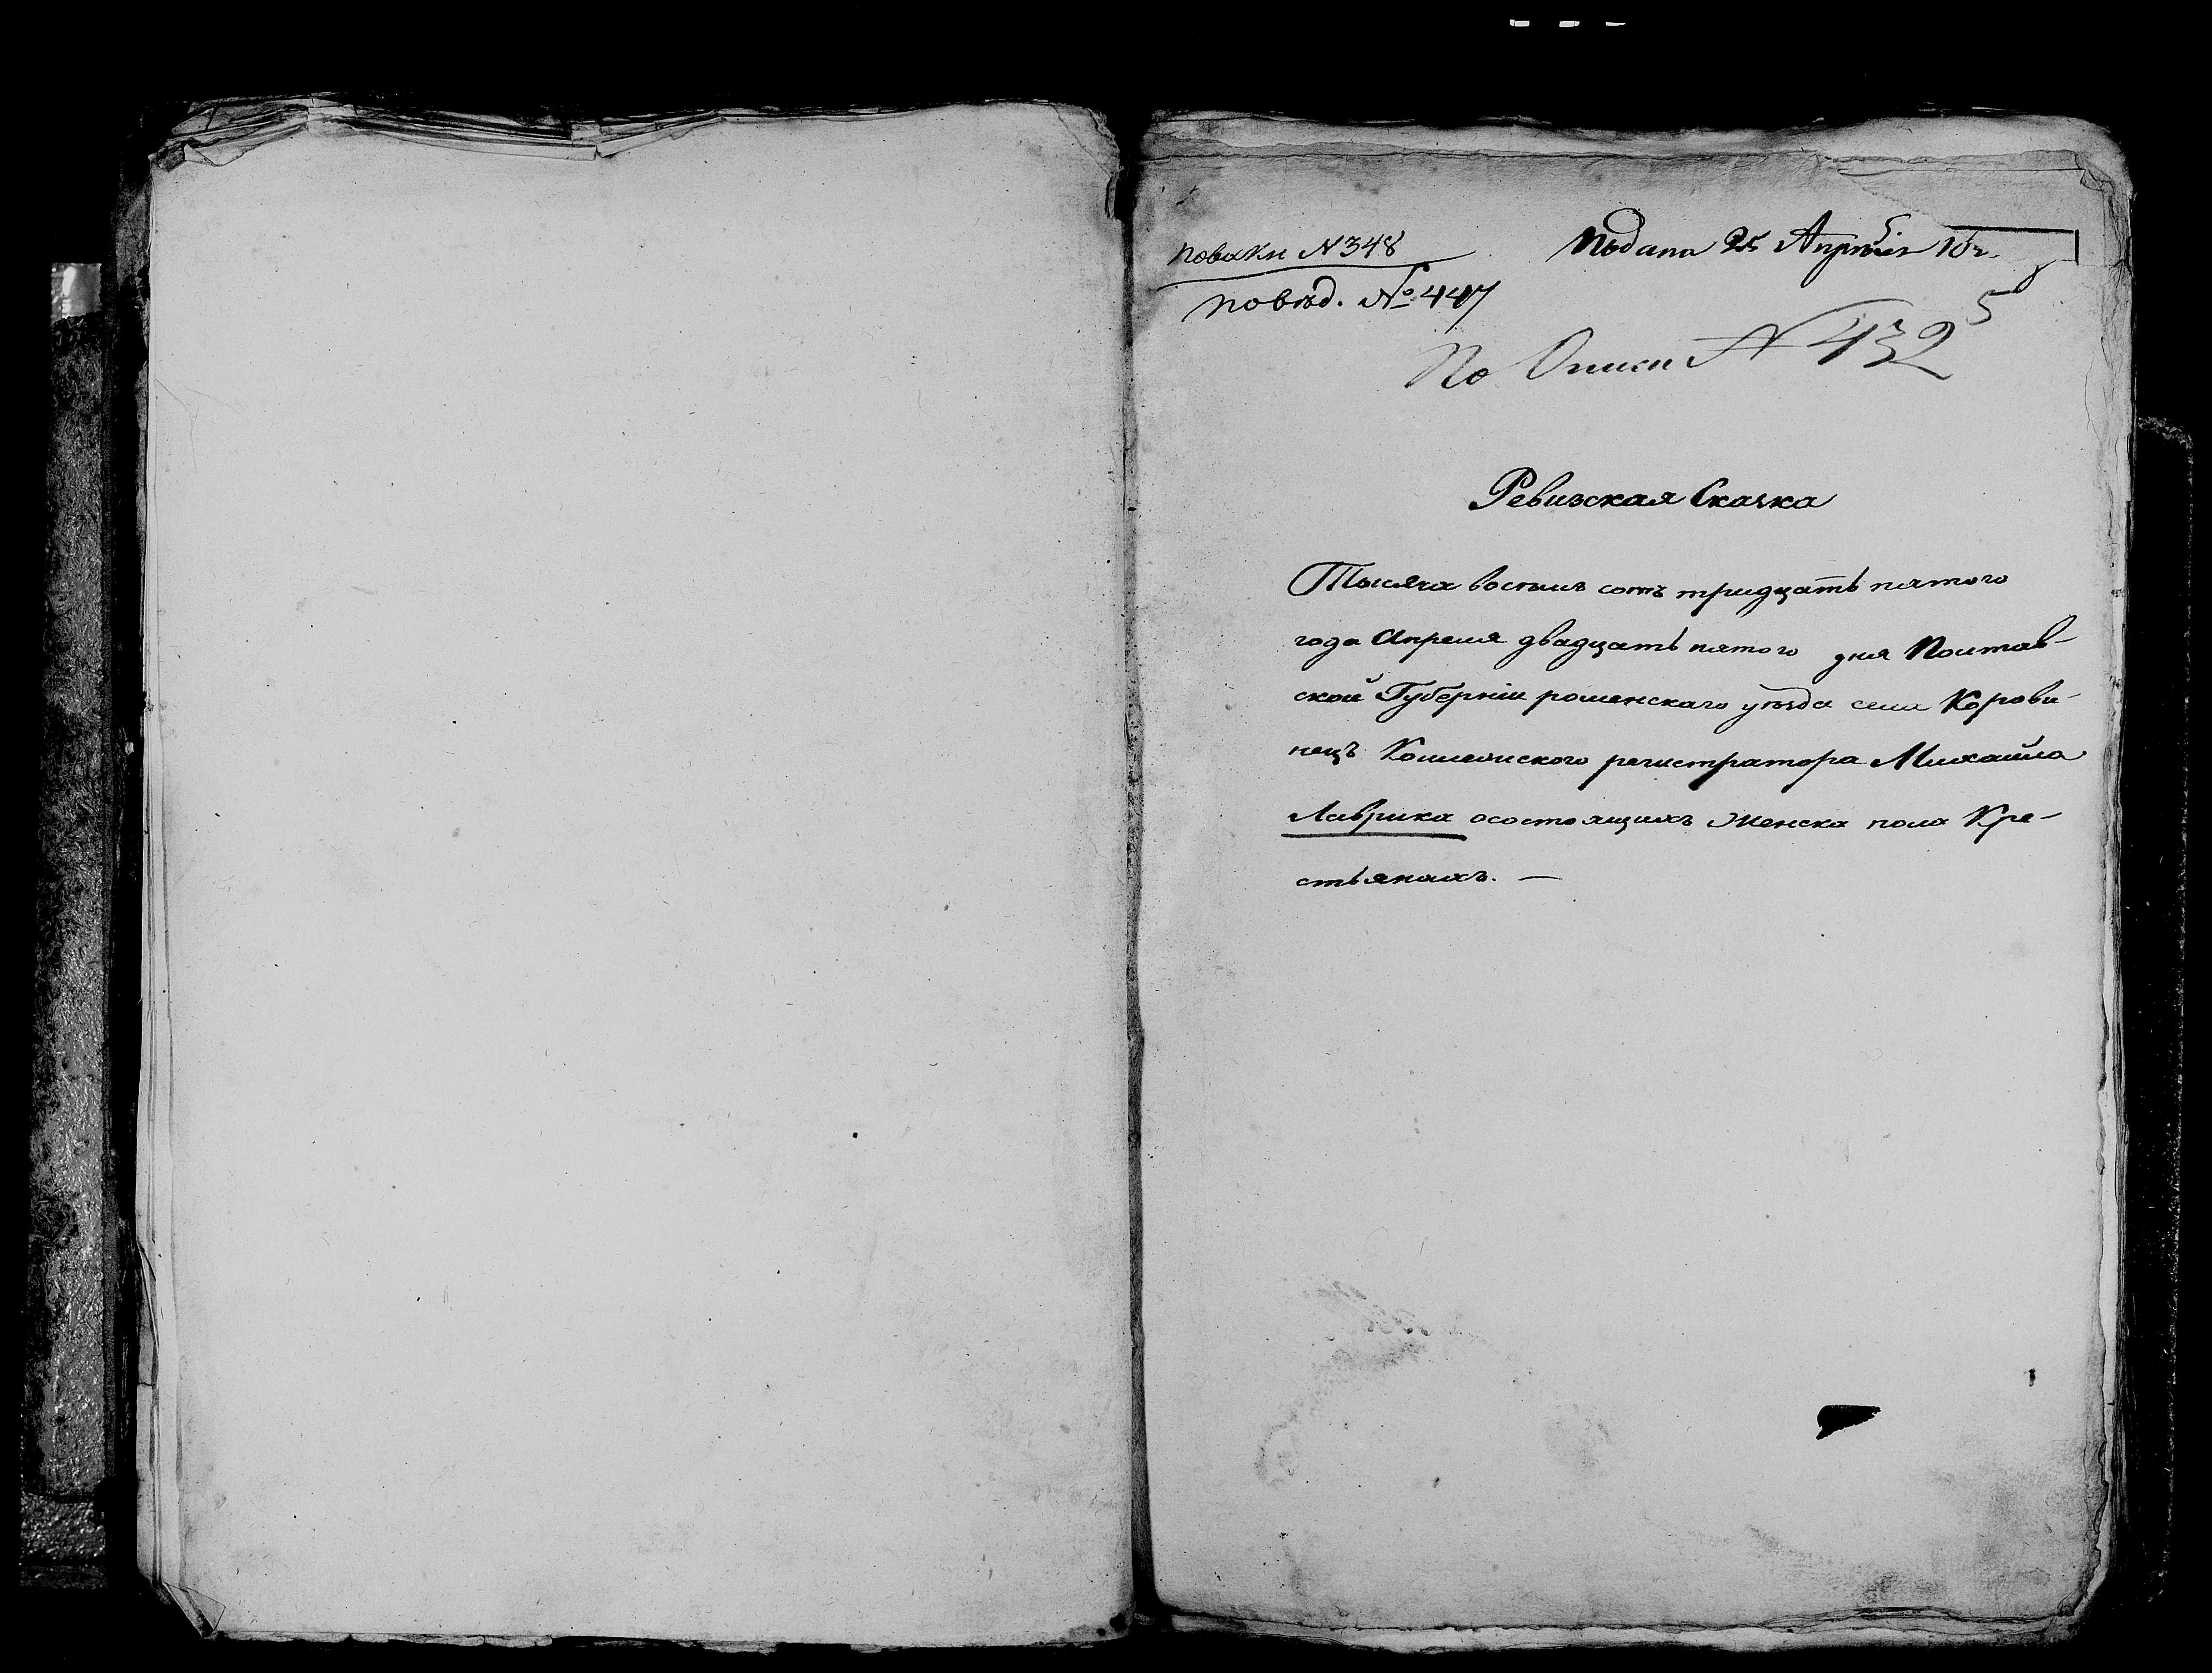 Подана 25 Апреля
N 348
По вѣд. № 447
По Описи N 432
5
Ревизская Сказка
Тысяча восемь сотъ тридцать пятого
года Апреля двадцать пятого дня Полтав-
ской Губерніи роменскаго уѣзда села Корови-
нецъ Коллежского регистратора Михайла
Лаврика о состоящихъ женска пола Кре-
стьянахъ. —